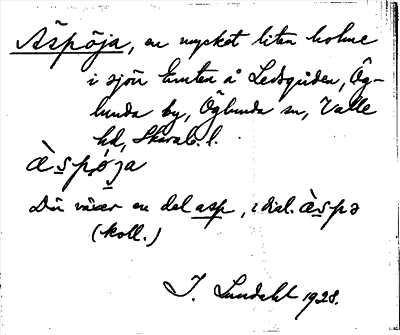 Äspöja, en mycket liten holme
i sjön tomten å Ledsgården, Ög-
lunda by, Öglunda sn, Valle
hd, Skarab. l.
Där växer en del asp, i dial.
(koll.)
J. Lundahl 1928.